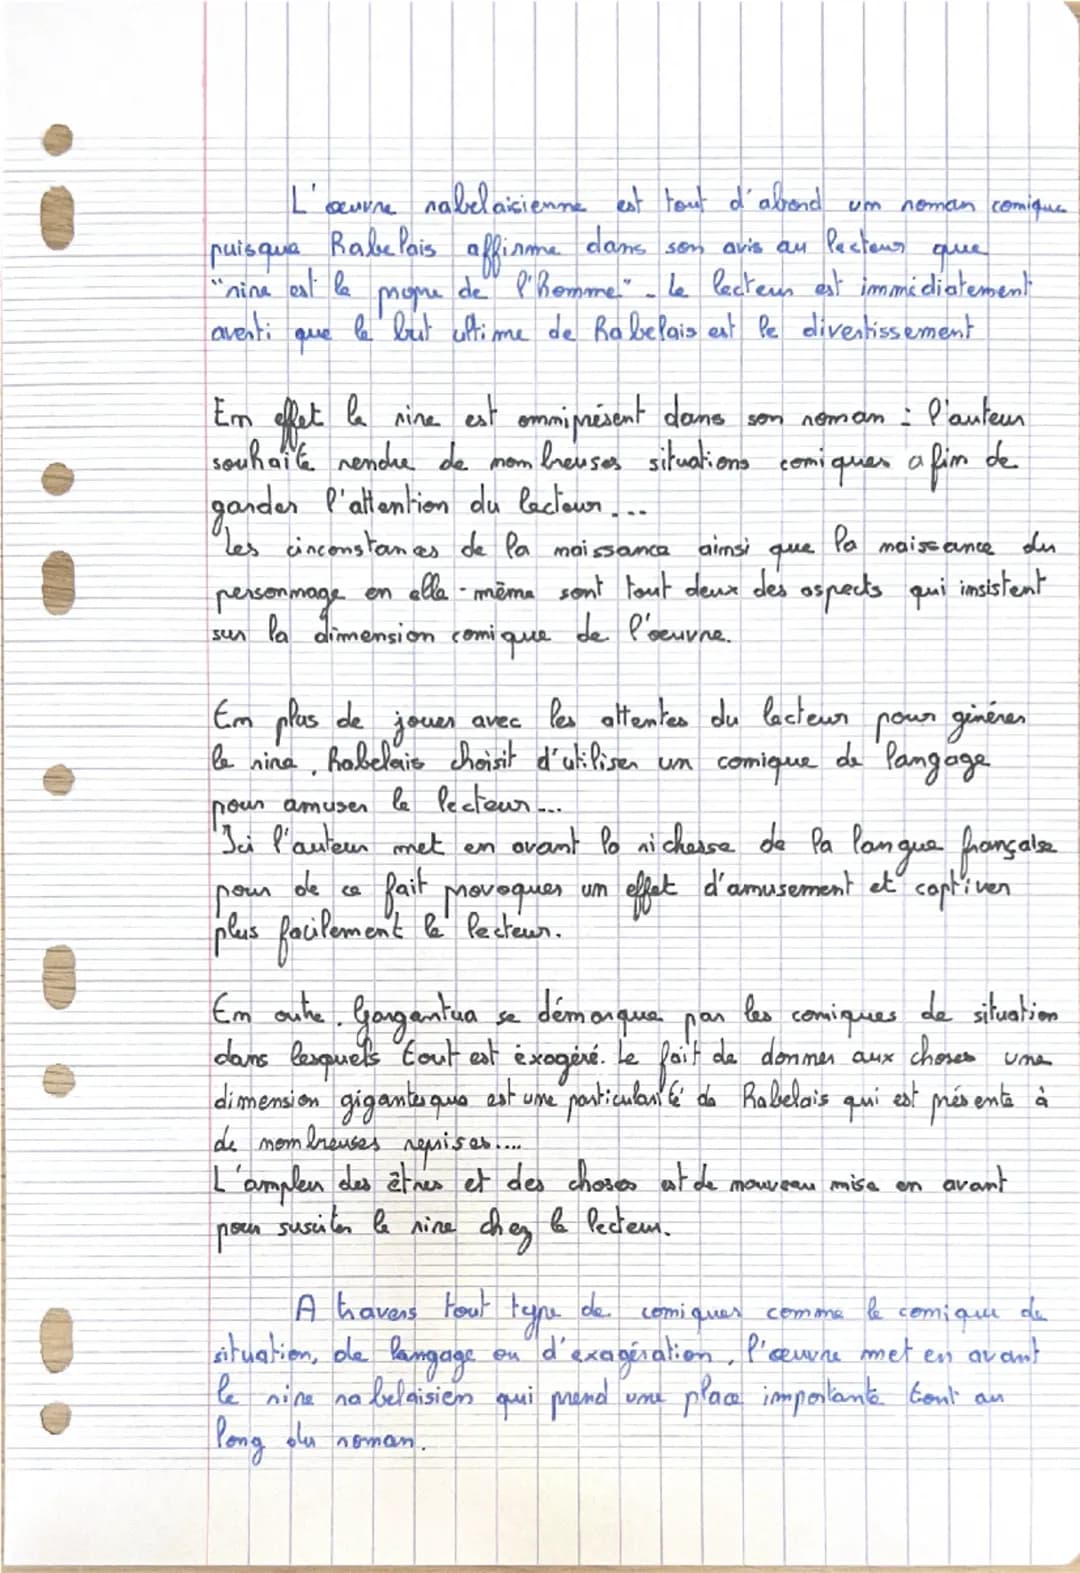 L'œuvre rabelaisienne est tout d'abord un roman comique
puisque Rabelais affirme dans son avis au lecteur que
"rire est le propre de l'homme". Le lecteur est immédiatement
averti que le but ultime de Rabelais est le divertissement
En effet le rire est omniprésent dans son roman : l'auteur
souhaite rendre de nombreuses situations comiques afin de
garder l'attention du lecteur....
Les circonstances de la naissance ainsi que la naissance du
personnage en elle-même sont tout deux des aspects qui insistent
sur la dimension comique de l'œuvre.
En plus de jouer avec les attentes du lecteur pour générer
le rire, Rabelais choisit d'utiliser un comique de langage
pour amuser le lecteur...
Ici l'auteur met en avant la richesse de la langue française
pour de ce fait provoquer un effet d'amusement et captiver
plus facilement le lecteur.
En outre, Gargantua se démarque par les comiques de situation
dans lesquels tout est éxagéré. Le fait de donner aux choses une
dimension gigantesque est une particularité de Rabelais qui est présente à
de nombreuses reprises....
L'ampleur des êtres et des choses est de nouveau mise en avant
pour susciter le rire chez le lecteur.
A travers tout type de comiques comme le comique de
situation, de langage ou d'exagération, l'œuvre met en avant
le rire rabelaisien qui prend une place importante tout au
long du roman.